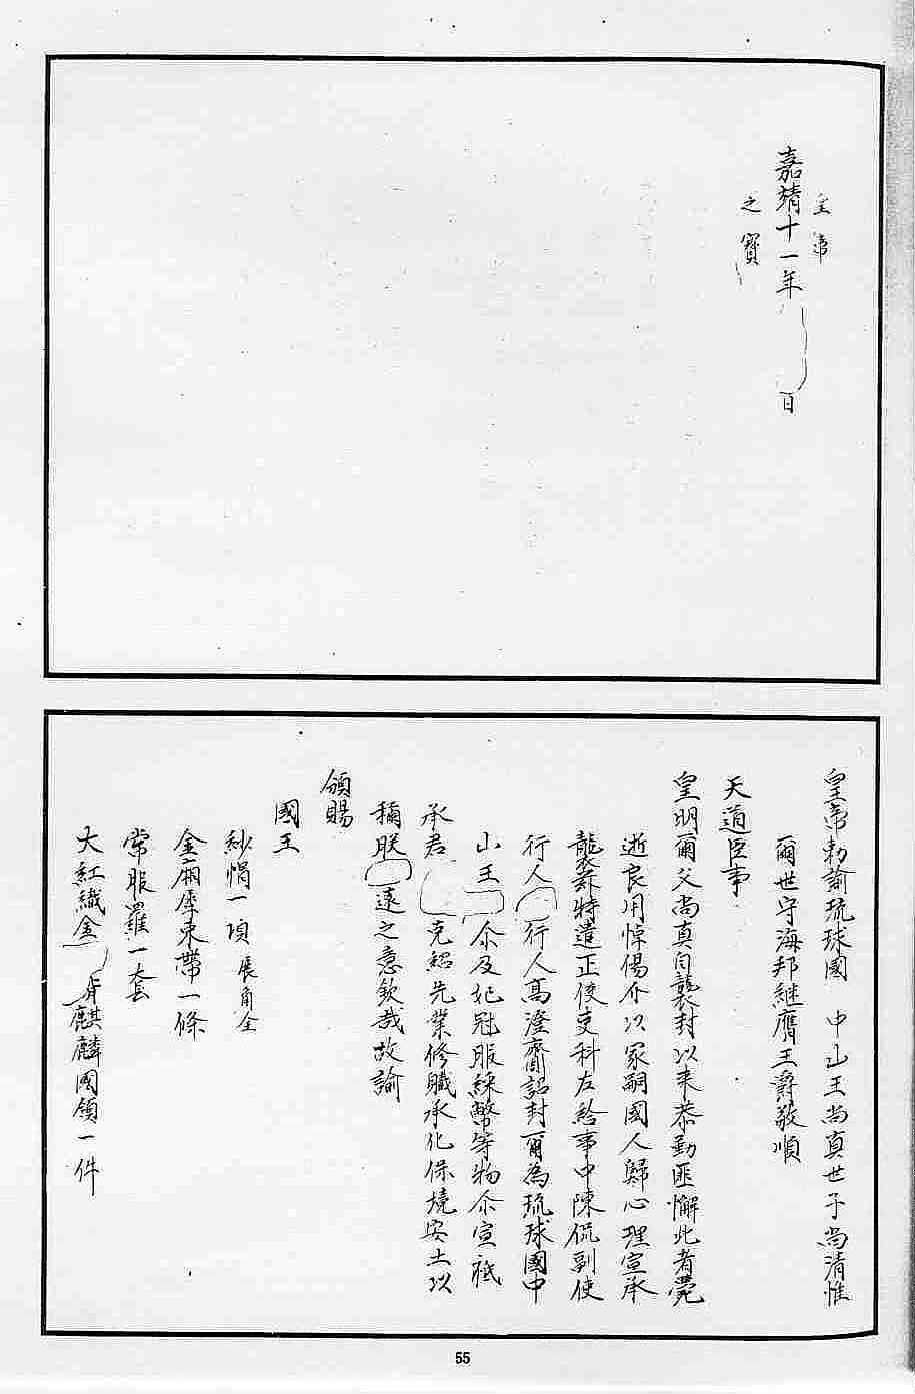 皇帝
嘉靖十一年 日
之寳
皇帝勅諭琉球國 中山王尚真世子尚清惟
爾世守海邦継膺王爵敬順
天道臣事
皇明爾父尚真自襲封以来恭勤匪懈此者薨
逝良用悼傷尒以冢嗣國人歸心理宜承
襲茲特遣正使吏科左給事中陳侃副使
行人 行人高澄齎詔封爾為琉球國中
山王 尒及妃冠服綵幣等物尒宣祗
承君 克紹先業修職承化保境安土以
稱朕 遠之意欽哉故諭
頒賜
國王
紗帽一項 展角全
金廂犀束帶一條
常服羅一套
大紅織金 背麒麟圓領一件
55